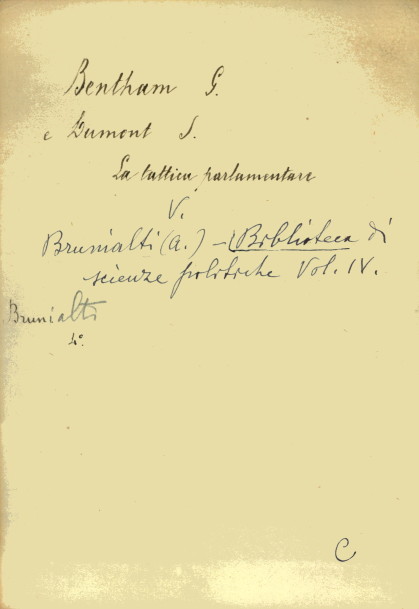 Bentham G.
e Dumont S.
La tattica parlamentare
V.
Brunialti (A.) - Biblioteca di
scienze politiche Vol. IV.
Brunialti
4°.
C